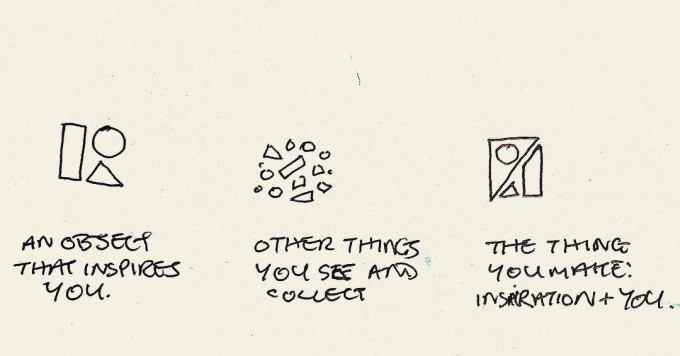 AN OBJECT
THAT INSPIRES
YOU.
OTHER THINGS
YOU SEE AND
COLLECT
THE THING
YOU MAKE:
INSPIRATION + YOU.